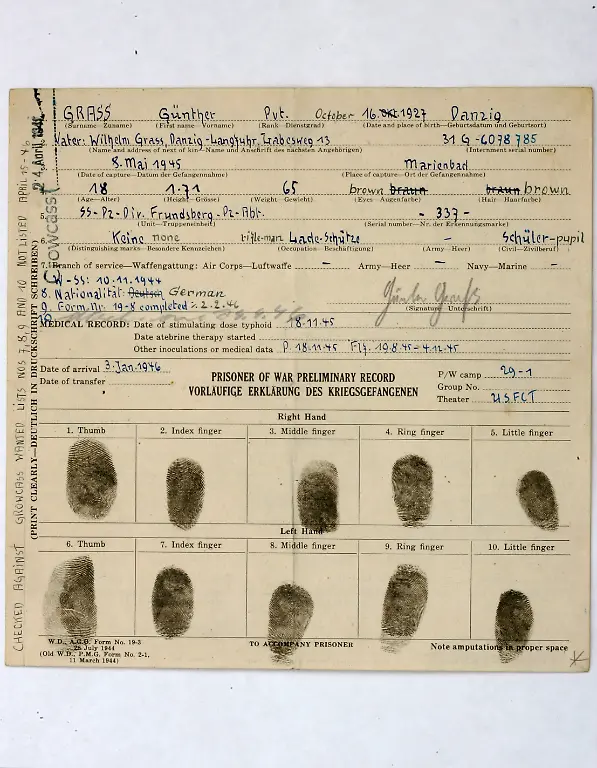 GRASS Günther Pvt. October 16. Okt 1927 Danzig
(Surname Zuname) (First name - Vorname) (Rank - Dienstgrad) (Date and place of birth—Geburtsdatum und Geburtsort)
Vater: Wilhelm Grass, Danzig-Langfuhr, Labesweg 13 31 G - 6078 785
(Name and address of next of kin—Name und Anschrift des nächsten Angehörigen) (Internment serial number)
8. Mai 1945 Marienbad
(Date of capture—Datum der Gefangennahme) (Place of capture—Ort der Gefangennahme)
18 1.71 65 brown braun braun brown
(Age—Alter) (Height—Grösse) (Weight—Gewicht) (Eyes—Augenfarbe) (Hair—Haarfarbe)
SS-Pz-Div. Frundsberg-Pz-Abt. - 337 -
(Unit—Truppeneinheit) (Serial number—Nr. der Erkennungsmarke)
6. Keine none rifle-man Lade-Schütze Schüler-pupil
(Distinguishing marks—Besondere Kennzeichen) (Occupation—Beschäftigung) (Army—Heer) (Civil—Zivilberuf)
7. Branch of service—Waffengattung: Air Corps—Luftwaffe – Army—Heer – Navy—Marine –
W-SS: 10.11.1944
8. Nationalität: Deutsch German
9. Form. Nr. 19-8 completed: 2.2.46
Günter Graß
(Signature Unterschrift)
MEDICAL RECORD: Date of stimulating dose typhoid 18-11-45
Date atebrine therapy started
Other inoculations or medical data P. 18-11-45 Fly. 19.8.45 - 4.12.45
Date of arrival 3. Jan. 1946
Date of transfer
PRISONER OF WAR PRELIMINARY RECORD
VORLÄUFIGE ERKLÄRUNG DES KRIEGSGEFANGENEN
P/W camp 29-1
Group No.
Theater USFET
Right Hand
1. Thumb 2. Index finger 3. Middle finger 4. Ring finger 5. Little finger
Left Hand
6. Thumb 7. Index finger 8. Middle finger 9. Ring finger 10. Little finger
W.D., A.G.O. Form No. 19-3
25 July 1944
(Old W.D., P.M.G. Form No. 2-1,
11 March 1944)
TO ACCOMPANY PRISONER
Note amputations in proper space
(PRINT CLEARLY—DEUTLICH IN DRUCKSCHRIFT SCHREIBEN)
CHECKED AGAINST GROWCASS WANTED LISTS NOS 7, 8, 9 AND 10 NOT LISTED APRIL 15 - 46
24. April 1946
Crowcass!